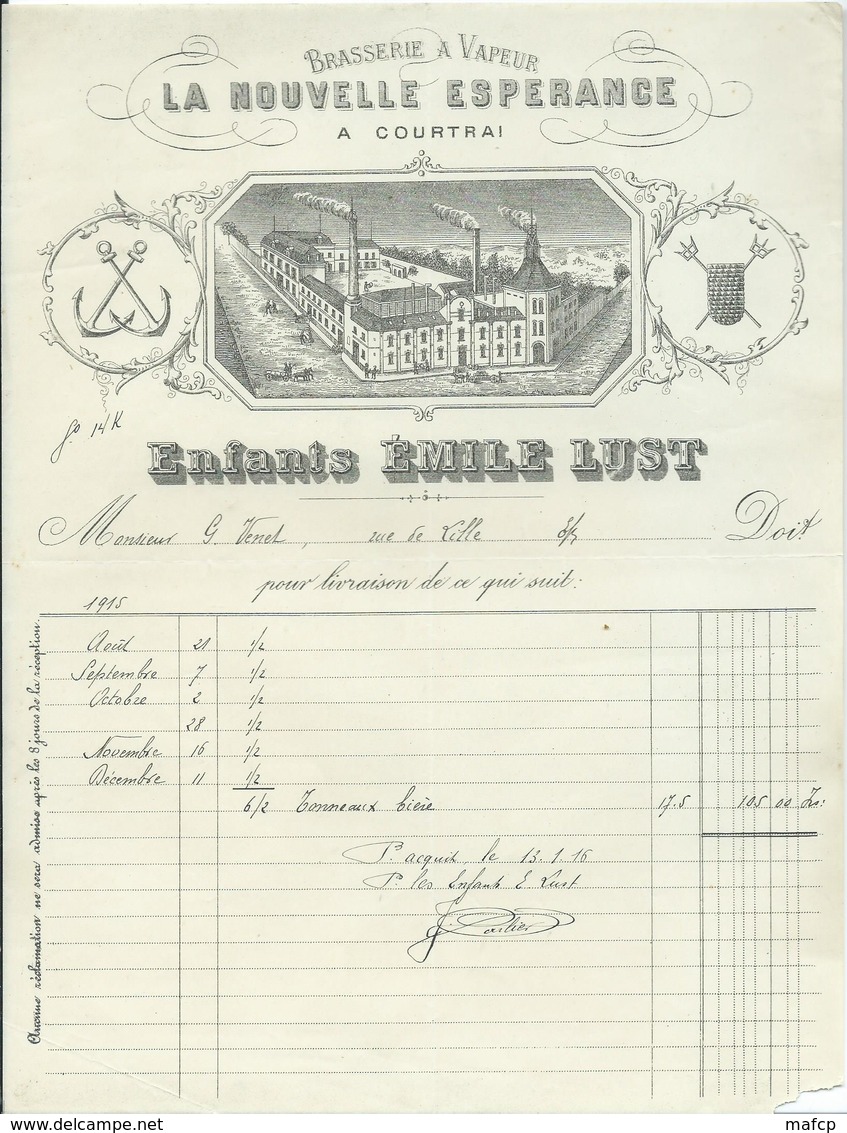 BRASSERIE A VAPEUR
LA NOUVELLE ESPERANCE
A COURTRAI
14 K
Enfants ÉMILE LUST
Monsieur G. Venet, rue de Lille Doit
pour livraison de ce qui suit:
1915
Août 21 1/2
Septembre 7 1/2
Octobre 2 1/2
28 1/2
Novembre 16 1/2
Décembre 11 1/2
6/2 Tonneaux bière 17.5 105 00
P. acquit, le 13.1.16
P. les Enfants E. Lust
Aucune réclamation ne sera admise après les 8 jours de la réception.
www.delcampe.net
mafcp